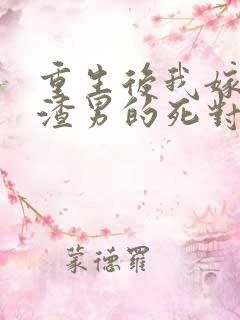 重生後我嫁
渣男的死對
蒙德羅